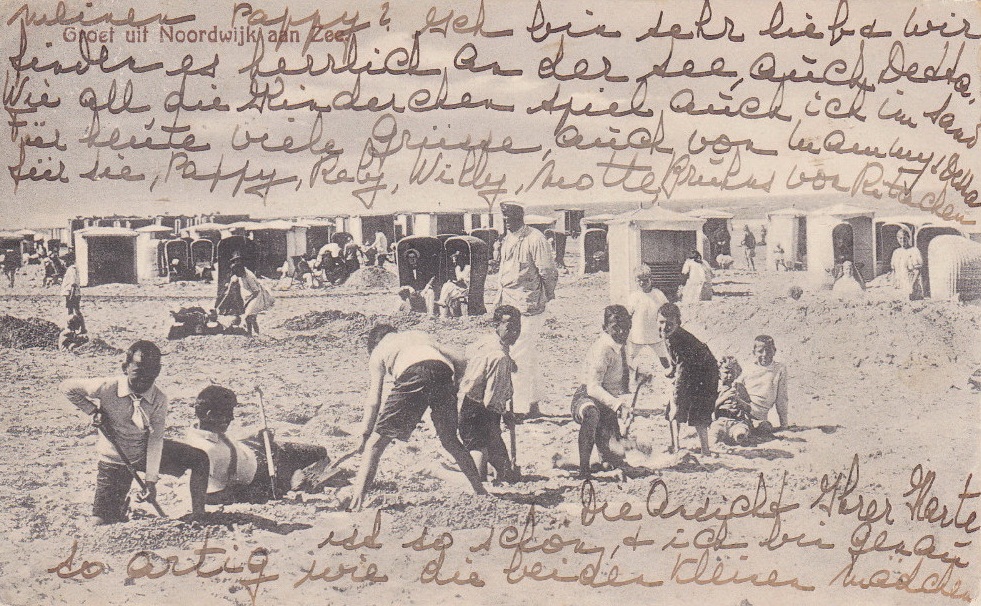 meinen Pappy? Ich bin sehr lieb & wir
Groet uit Noordwijk aan Zee.
finden es herrlich an der See, auch Dedda.
Wie all die Kinderchen spiel auch ich im Sand
Für heute viele Grüsse, auch von Mammy, Dedda
für sie, Pappy, Reby, Willy, Motte
von Ritachen
Die Ansicht Ihrer Karte
ist so schön, & ich bin genau
so artig wie die beiden kleinen Mädchen